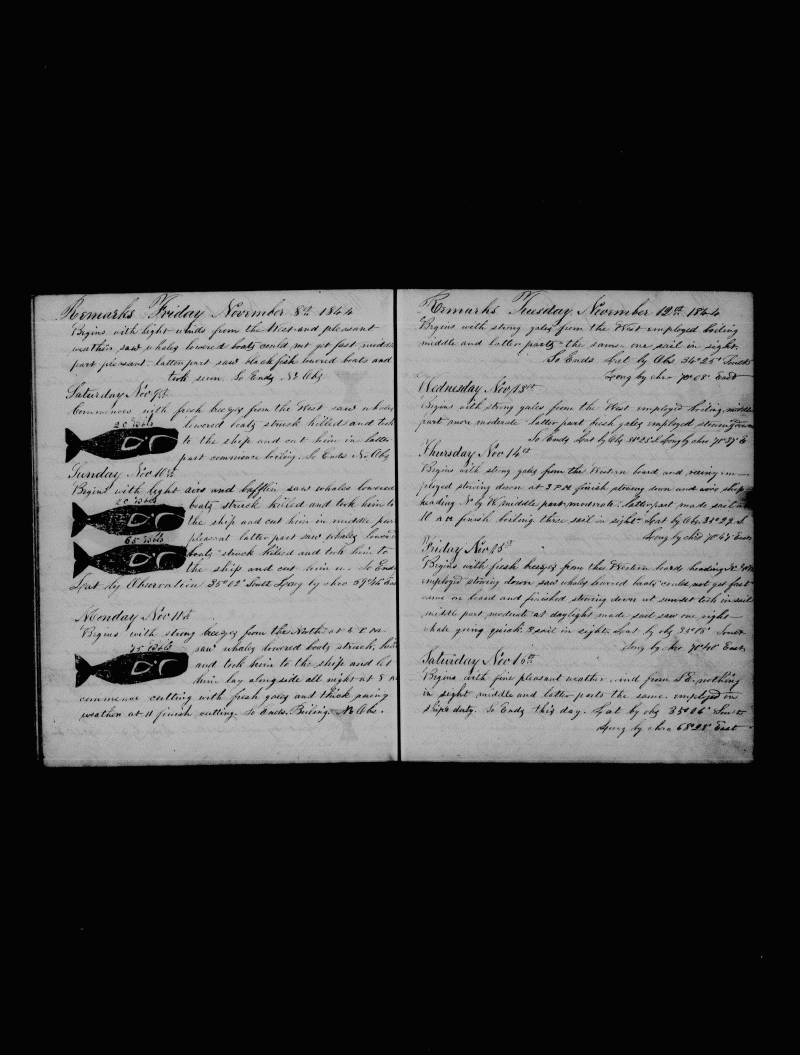 Remarks Friday November 8th 1844
Begins with light winds from the West and pleasant
weather saw whales lowered boats could not get fast middle
part pleasant latter part saw black fish lowered boats and
took seven So Ends No Obs
Saturday Nov 9th
Commences with fresh breezes from the West saw whales
20 Bbls lowered boats struck killed and took
to the ship and cut him in latter
part commence boiling So Ends No Obs
Sunday Nov 10th
Begins with light airs and bafflin saw whales lowered
20 Bbls boats struck killed and took him to
the ship and cut him in middle part
65 Bbls pleasant latter part saw whales lowered
boats struck killed and took him to
the ship and cut him in So Ends
Lat by Observation 35°02' South Long by chro
Monday Nov 11th
Begins with strong breezes from the North at P M
75 Bbls saw whales lowered boats struck
and took him to the ship and let
him lay alongside all night at
commence cutting with fresh gales and thick
weather at 11 finish cutting So Ends Boiling No Obs
Remarks Tuesday November 12th 1844
Begins with strong gales from the West employed boiling
middle and latter parts the same one sail in sight
So Ends Lat by Obs 34°25' South
Long by chro 70°08' East
Wednesday Nov 13th
Begins with strong gales from the West employed boiling middle
part more moderate latter part fresh gales employed stowing down
So Ends Lat by Obs S Long by chro E
Thursday Nov 14th
Begins with strong gales from the Western board and
ployed stowing down at 3 P M finish stowing down and wore ship
heading N by W middle part moderate latter part made sail
11 A M finish boiling three sail in sight Lat by Obs S
Long by chro 70°47' East
Friday Nov 15th
Begins with fresh breezes from the Western board heading
employed stowing down saw whales lowered boats could not get fast
came on board and finished stowing down at sunset took in sail
middle part moderate at daylight made sail saw one right
whale going quick 3 sail in sight Lat by obs South
Long by chro 70°40' East
Saturday Nov 16th
Begins with fine pleasant weather wind from S E nothing
in sight middle and latter parts the same employed on
ships duty So Ends this day Lat by obs 35°26' South
Long by chro 68°28' East